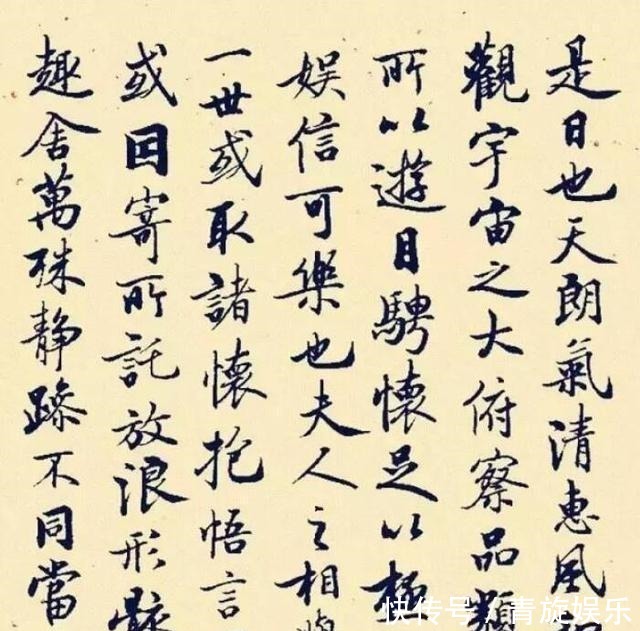 是日也天朗氣清惠風
觀宇宙之大俯察品類
所以遊目騁懷足以極
娱信可樂也夫人之相與
一世或取諸懷抱悟言
或因寄所託放浪形骸
趣舍萬殊静躁不同當
快传号/青旋娱乐